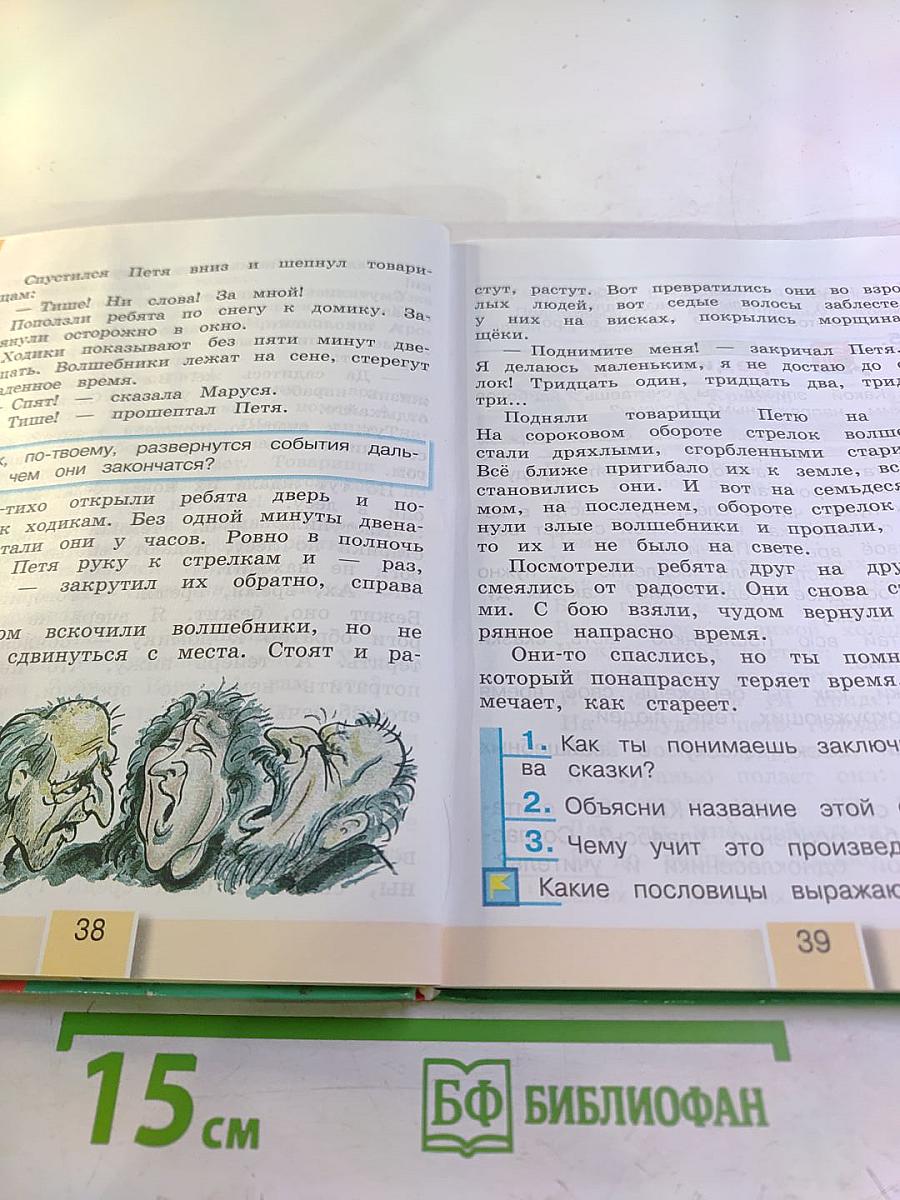 Спустился Петя вниз и шепнул товари-
щам:
— Тише! Ни слова! За мной!
Поползли ребята по снегу к домику. За-
янули осторожно в окно.
Ходики показывают без пяти минут две-
цать. Волшебники лежат на сене, стерегут
аденное время.
Спят! — сказала Маруся.
Тише! — прошептал Петя.
к, по-твоему, развернутся события даль-
чем они закончатся?
-тихо открыли ребята дверь и по-
к ходикам. Без одной минуты двена-
тали они у часов. Ровно в полночь
Петя руку к стрелкам и — раз,
— закрутил их обратно, справа
ом вскочили волшебники, но не
сдвинуться с места. Стоят и ра-
38
стут, растут. Вот превратились они во взро
лых людей, вот седые волосы заблесте
у них на висках, покрылись морщина
щёки.
— Поднимите меня! — закричал Петя.
Я делаюсь маленьким, я не достаю до
лок! Тридцать один, тридцать два, трид
три...
Подняли товарищи Петю на
На сороковом обороте стрелок волше
стали дряхлыми, сгорбленными стари
Всё ближе пригибало их к земле, вс
становились они. И вот на семьдеся
мом, на последнем, обороте стрелок
нули злые волшебники и пропали,
то их и не было на свете.
Посмотрели ребята друг на дру
смеялись от радости. Они снова с
ми. С бою взяли, чудом вернули
рянное напрасно время.
Они-то спаслись, но ты помн
который понапрасну теряет время.
мечает, как стареет.
1. Как ты понимаешь заключ
ва сказки?
2. Объясни название этой
3. Чему учит это произвед
Какие пословицы выражаю
39
15 см
БФ БИБЛИОФАН